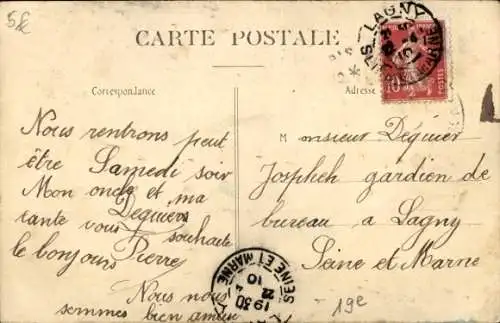 5f
CARTE POSTALE
Correspondance
Adresse
LAGNY
SEINE ET MARNE
10
POSTES
Nous rentrons peut
être Samedi soir
Mon oncle et ma
tante vous souhaite
Dequiers
le bonjours Pierre
Nous nous
sommes bien amuser
Monsieur Dequier
Jospheh gardien de
bureau a Lagny
Seine et Marne
SEINE ET MARNE
19 30
22
4
10
19e
L